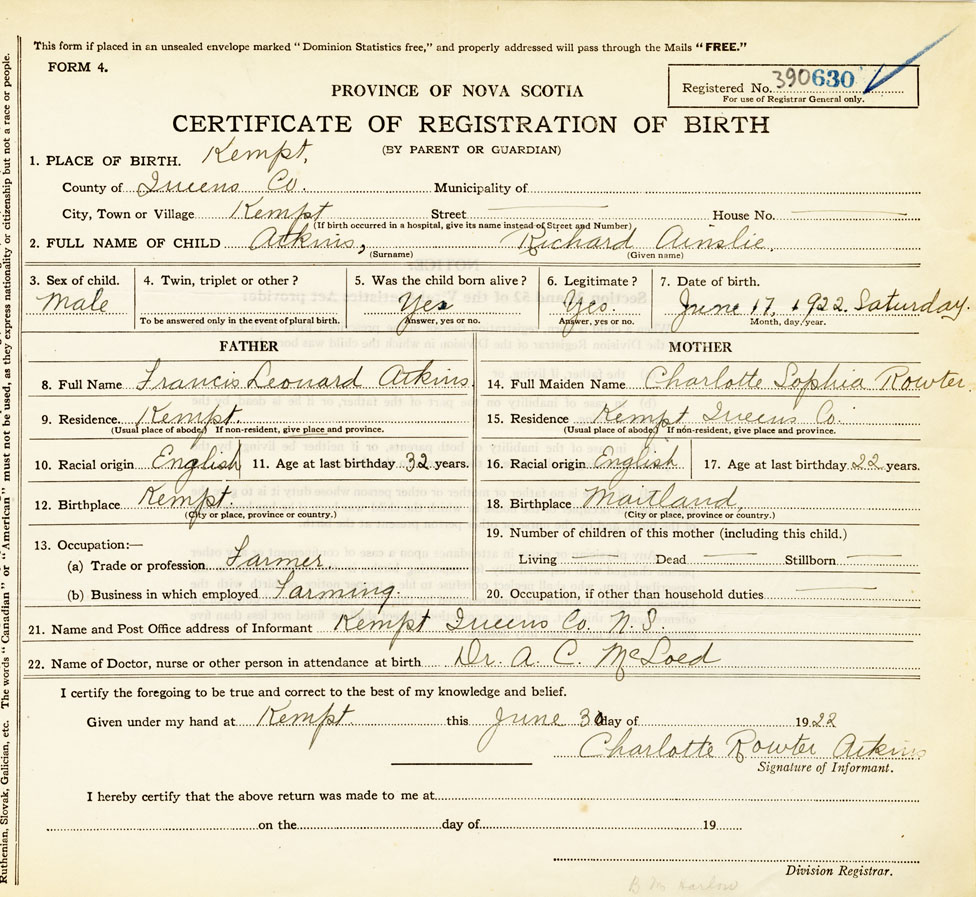 This form if placed in an unsealed envelope marked "Dominion Statistics free," and properly addressed will pass through the Mails "FREE."
FORM 4.
Registered No. 390630
For use of Registrar General only.
PROVINCE OF NOVA SCOTIA
CERTIFICATE OF REGISTRATION OF BIRTH
(BY PARENT OR GUARDIAN)
1. PLACE OF BIRTH. Kempt,
County of Queens Co. Municipality of
City, Town or Village Kempt Street House No.
(If birth occurred in a hospital, give its name instead of Street and Number)
2. FULL NAME OF CHILD Atkins, Richard Ainslie.
(Surname) (Given name)
3. Sex of child. 4. Twin, triplet or other? 5. Was the child born alive? 6. Legitimate? 7. Date of birth.
Male Yes Yes. June 17, 1922. Saturday.
To be answered only in the event of plural birth. Answer, yes or no. Answer, yes or no. Month, day, year.
FATHER MOTHER
8. Full Name Francis Leonard Atkins 14. Full Maiden Name Charlotte Sophia Rowter.
9. Residence Kempt. 15. Residence Kempt Queens Co.
(Usual place of abode.) If non-resident, give place and province. (Usual place of abode.) If non-resident, give place and province.
10. Racial origin English 11. Age at last birthday 32 years. 16. Racial origin English 17. Age at last birthday 22 years.
12. Birthplace Kempt. 18. Birthplace Maitland,
(City or place, province or country.) (City or place, province or country.)
13. Occupation:— 19. Number of children of this mother (including this child.)
(a) Trade or profession Farmer. Living Dead Stillborn
(b) Business in which employed Farming. 20. Occupation, if other than household duties
21. Name and Post Office address of Informant Kempt Queens Co. N. S.
22. Name of Doctor, nurse or other person in attendance at birth Dr. A. C. McLoed
I certify the foregoing to be true and correct to the best of my knowledge and belief.
Given under my hand at Kempt this June 30 day of 1922
Charlotte Rowter Atkins
Signature of Informant.
I hereby certify that the above return was made to me at
on the day of 19
Division Registrar.
Ruthenian, Slovak, Galician, etc. The words "Canadian" or "American" must not be used, as they express nationality or citizenship but not a race or people.